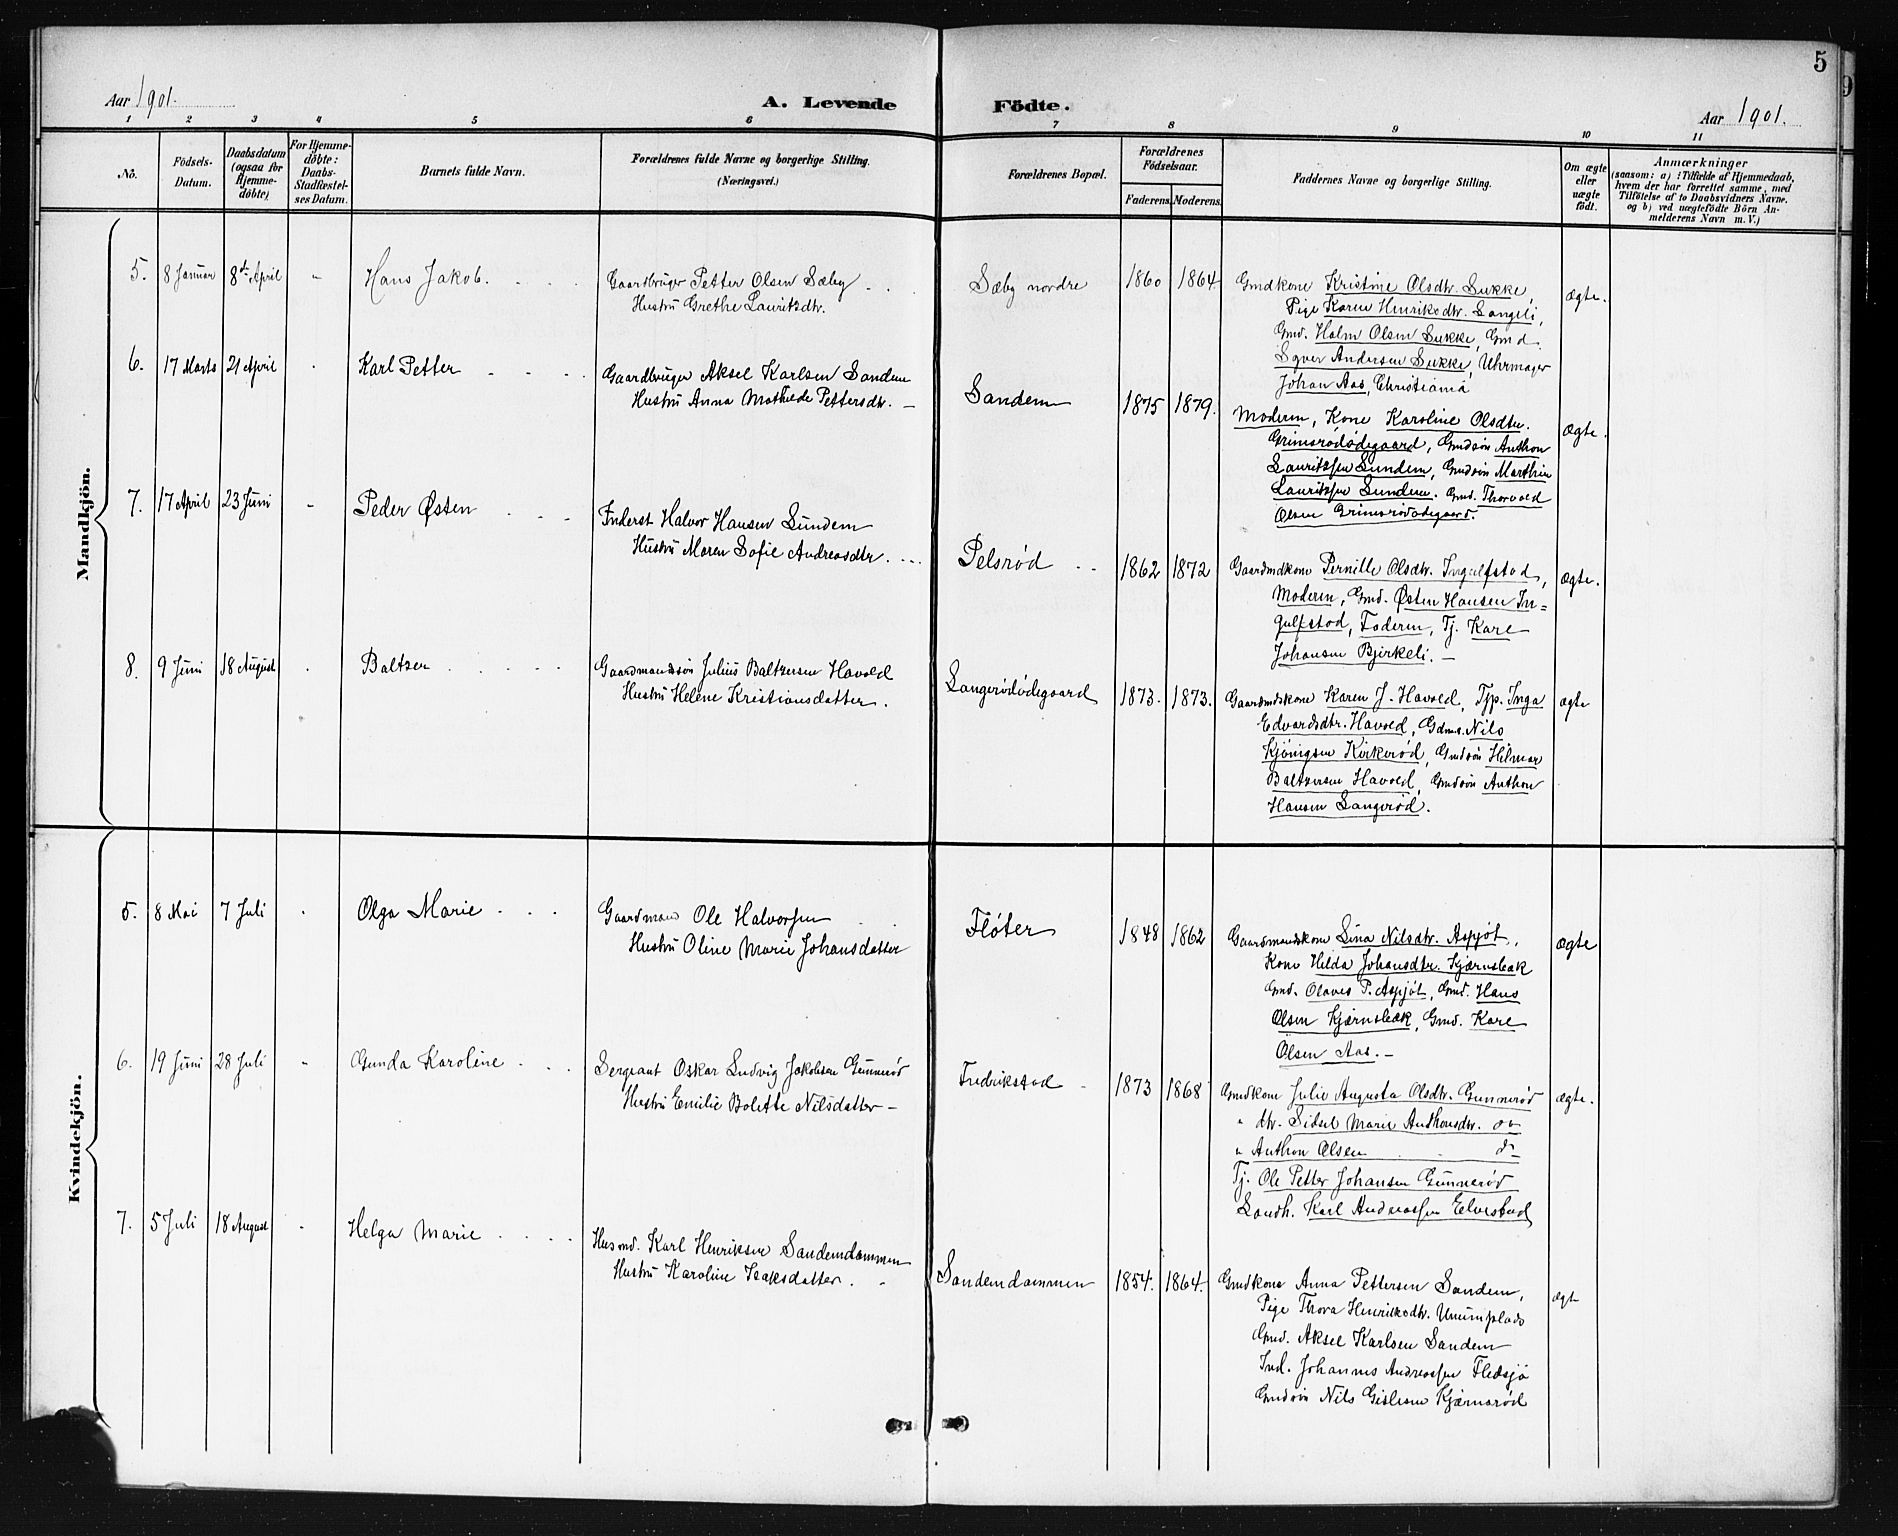 5
9
Aar 1901.
A. Levende
Födte.
Aar 1901.
1 2 3 4 5 6 7 8 9 10 11
No.
Födsels-
Datum.
Daabsdatum
(ogsaa for
Hjemme-
döbte)
For Hjemme-
döbte:
Daabs-
Stadfæstel-
ses Datum.
Barnets fulde Navn.
Forældrenes fulde Navne og borgerlige Stilling.
(Næringsvei.)
Forældrenes Bopæl.
Forældrenes
Födselsaar.
Faderens. Moderens.
Faddernes Navne og borgerlige Stilling.
Om ægte
eller
uægte
födt.
Anmærkninger
(saasom: a) i Tilfælde af Hjemmedaab,
hvem der har forrettet samme, med
Tilföielse af to Daabsvidners Navne.
og b) ved uægtefödte Börn An-
melderens Navn m. V.)
Mandkjön.
5. 8 Januar 8de April " Hans Jakob.
Gaardbruger Petter Olsen Sæby
Hustru Grethe Lauritsdtr.
Sæby nordre
1860 1864.
Gmdkone Kristine Olsdtr. Sukke,
Pige Karen Henriksdtr. Sangeli,
Gmd. Halm Olsen Sukke, Gmd.
Syver Andersen Sukke, Uhrmager
Johan Aas, Christiania
ægte.
6. 17 Marts 21 April " Karl Petter
Gaardbruger Aksel Karlsen Sandem
Hustru Anna Mathilde Pettersdtr. –
Sandem
1875 1879.
Moderen, Kone Karoline Olsdter.
Grimsrödödegaard, Gmdsön Anthon
Lauritzsen Sundem, Gmdsön Marthin
Lauritzsen Sundem. Gmd. Thorvald
Olsen Grimsrödödegaard.
ægte.
7. 17 April 23 Juni " Peder Østen
Inderst Halvor Hansen Sundem
Hustru Maren Sofie Andreasdtr.
Pelsrød
1862 1872
Gaardmdkone Pernille Olsdtr. Ingulfstad,
Moderen, Gmd. Østen Hansen In=
gulfstad, Faderen, Tj. Karl
Johansen Bjerkeli. –
ægte.
8. 9 Juni 18 August " Baltzer
Gaardmandssön Julius Baltzersen Havold
Hustru Helene Kristiansdatter.
Langerødødegaard
1873. 1873.
Gaardmdskone Karen J. Havold, Tjp. Inga
Edvardsdtr. Havold, Gdms. Nils
Kjönigsen Kirkerød, Gmdsön Hilmar
Baltzersen Havold, Gmdsön Anthon
Hansen Langerød.
ægte
Kvindekjön.
5. 8 Mai 7 Juli " Olga Marie
Gaardmand Ole Halvorsen
Hustru Oline Marie Johansdatter
Fløter
1848 1862
Gaardmandskone Lina Nilsdtr. Aspjöt,
Kone Hilda Johansdtr. Kjærnsbæk
Gmd. Olaves P. Aspjöt, Gmd. Hans
Olsen Kjærnsbæk, Gmd. Karl
Olsen Aas. –
ægte
6. 19 Juni 28 Juli " Gunda Karoline
Sergeant Oskar Ludvig Jakobsen Gunnerød
Hustru Emilie Bolette Nilsdatter –
Fredrikstad
1873 1868
Gmdkone Julie Augusta Olsdtr. Gunnerød
" dtr. Sidsel Marie Anthonsdtr. do
" Anthon Olsen do
Tj. Ole Petter Johansen Gunnerød
Landh. Karl Andreassen Elvestad
ægte.
7. 5 Juli 18 August " Helga Marie
Husmd. Karl Henriksen Sandemdammen
Hustru Karoline Isaksdatter.
Sandemdammen
1854. 1864.
Gmdkone Anna Pettersen Sandem,
Pige Thora Henriksdtr.
Gmd. Aksel Karlsen Sandem
Ind. Johannes Andreassen Fledsjø
Gmdsön Nils Gislesen Kjærnsrød
ægte